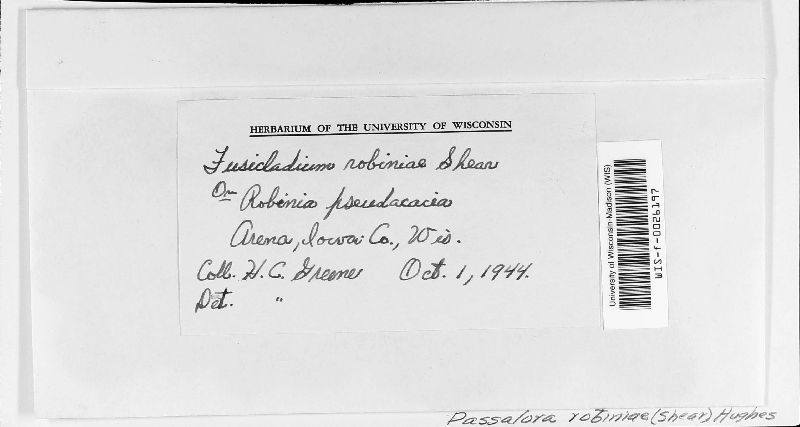 HERBARIUM OF THE UNIVERSITY OF WISCONSIN
Fusicladium robiniae Shear
On Robinia pseudacacia
Arena, Iowa Co., Wis.
Coll. H. C. Greene Oct. 1, 1944.
Det. "
University of Wisconsin-Madison (WIS)
WIS-f-0026197
Passalora robiniae (Shear) Hughes